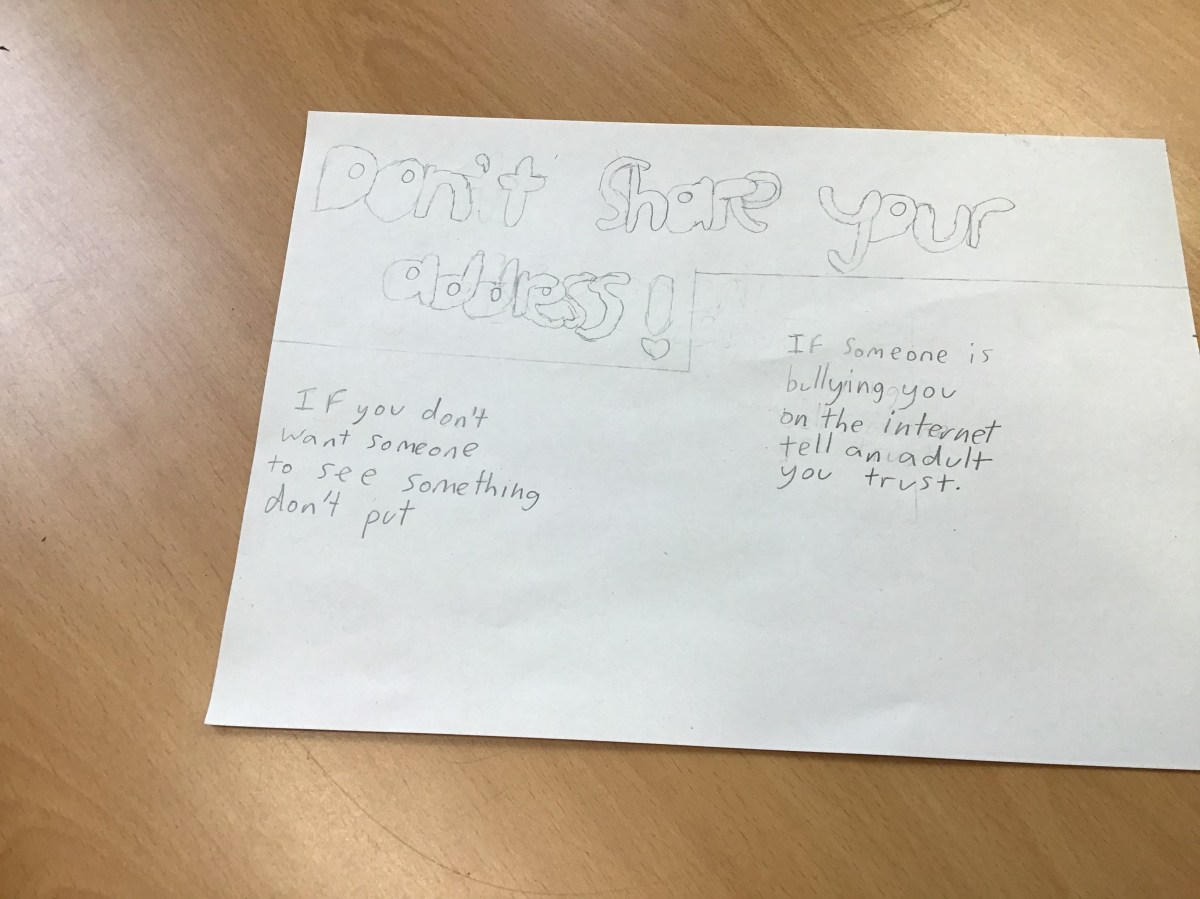 Don't Share your
address!
If you don't
want someone
to see something
don't put
If someone is
bullying you
on the internet
tell an adult
you trust.